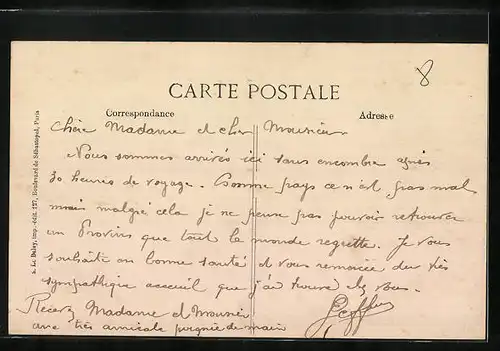 8
CARTE POSTALE
Correspondance
Adresse
Chère Madame et cher Monsieur
Nous sommes arrivés ici sans encombre après
30 heures de voyage. Comme pays ce n'est pas mal
mais malgré cela je ne pense pas pouvoir retrouver
un Provins que tout le monde regrette. Je vous
souhaite un bonne santé et vous remercie du très
sympathique accueil que j'ai trouvé chez vous.
Recevez Madame et Monsieur
une très amicale poignée de main
A. Le Deley, imp.-édit. 127, Boulevard de Sébastopol, Paris